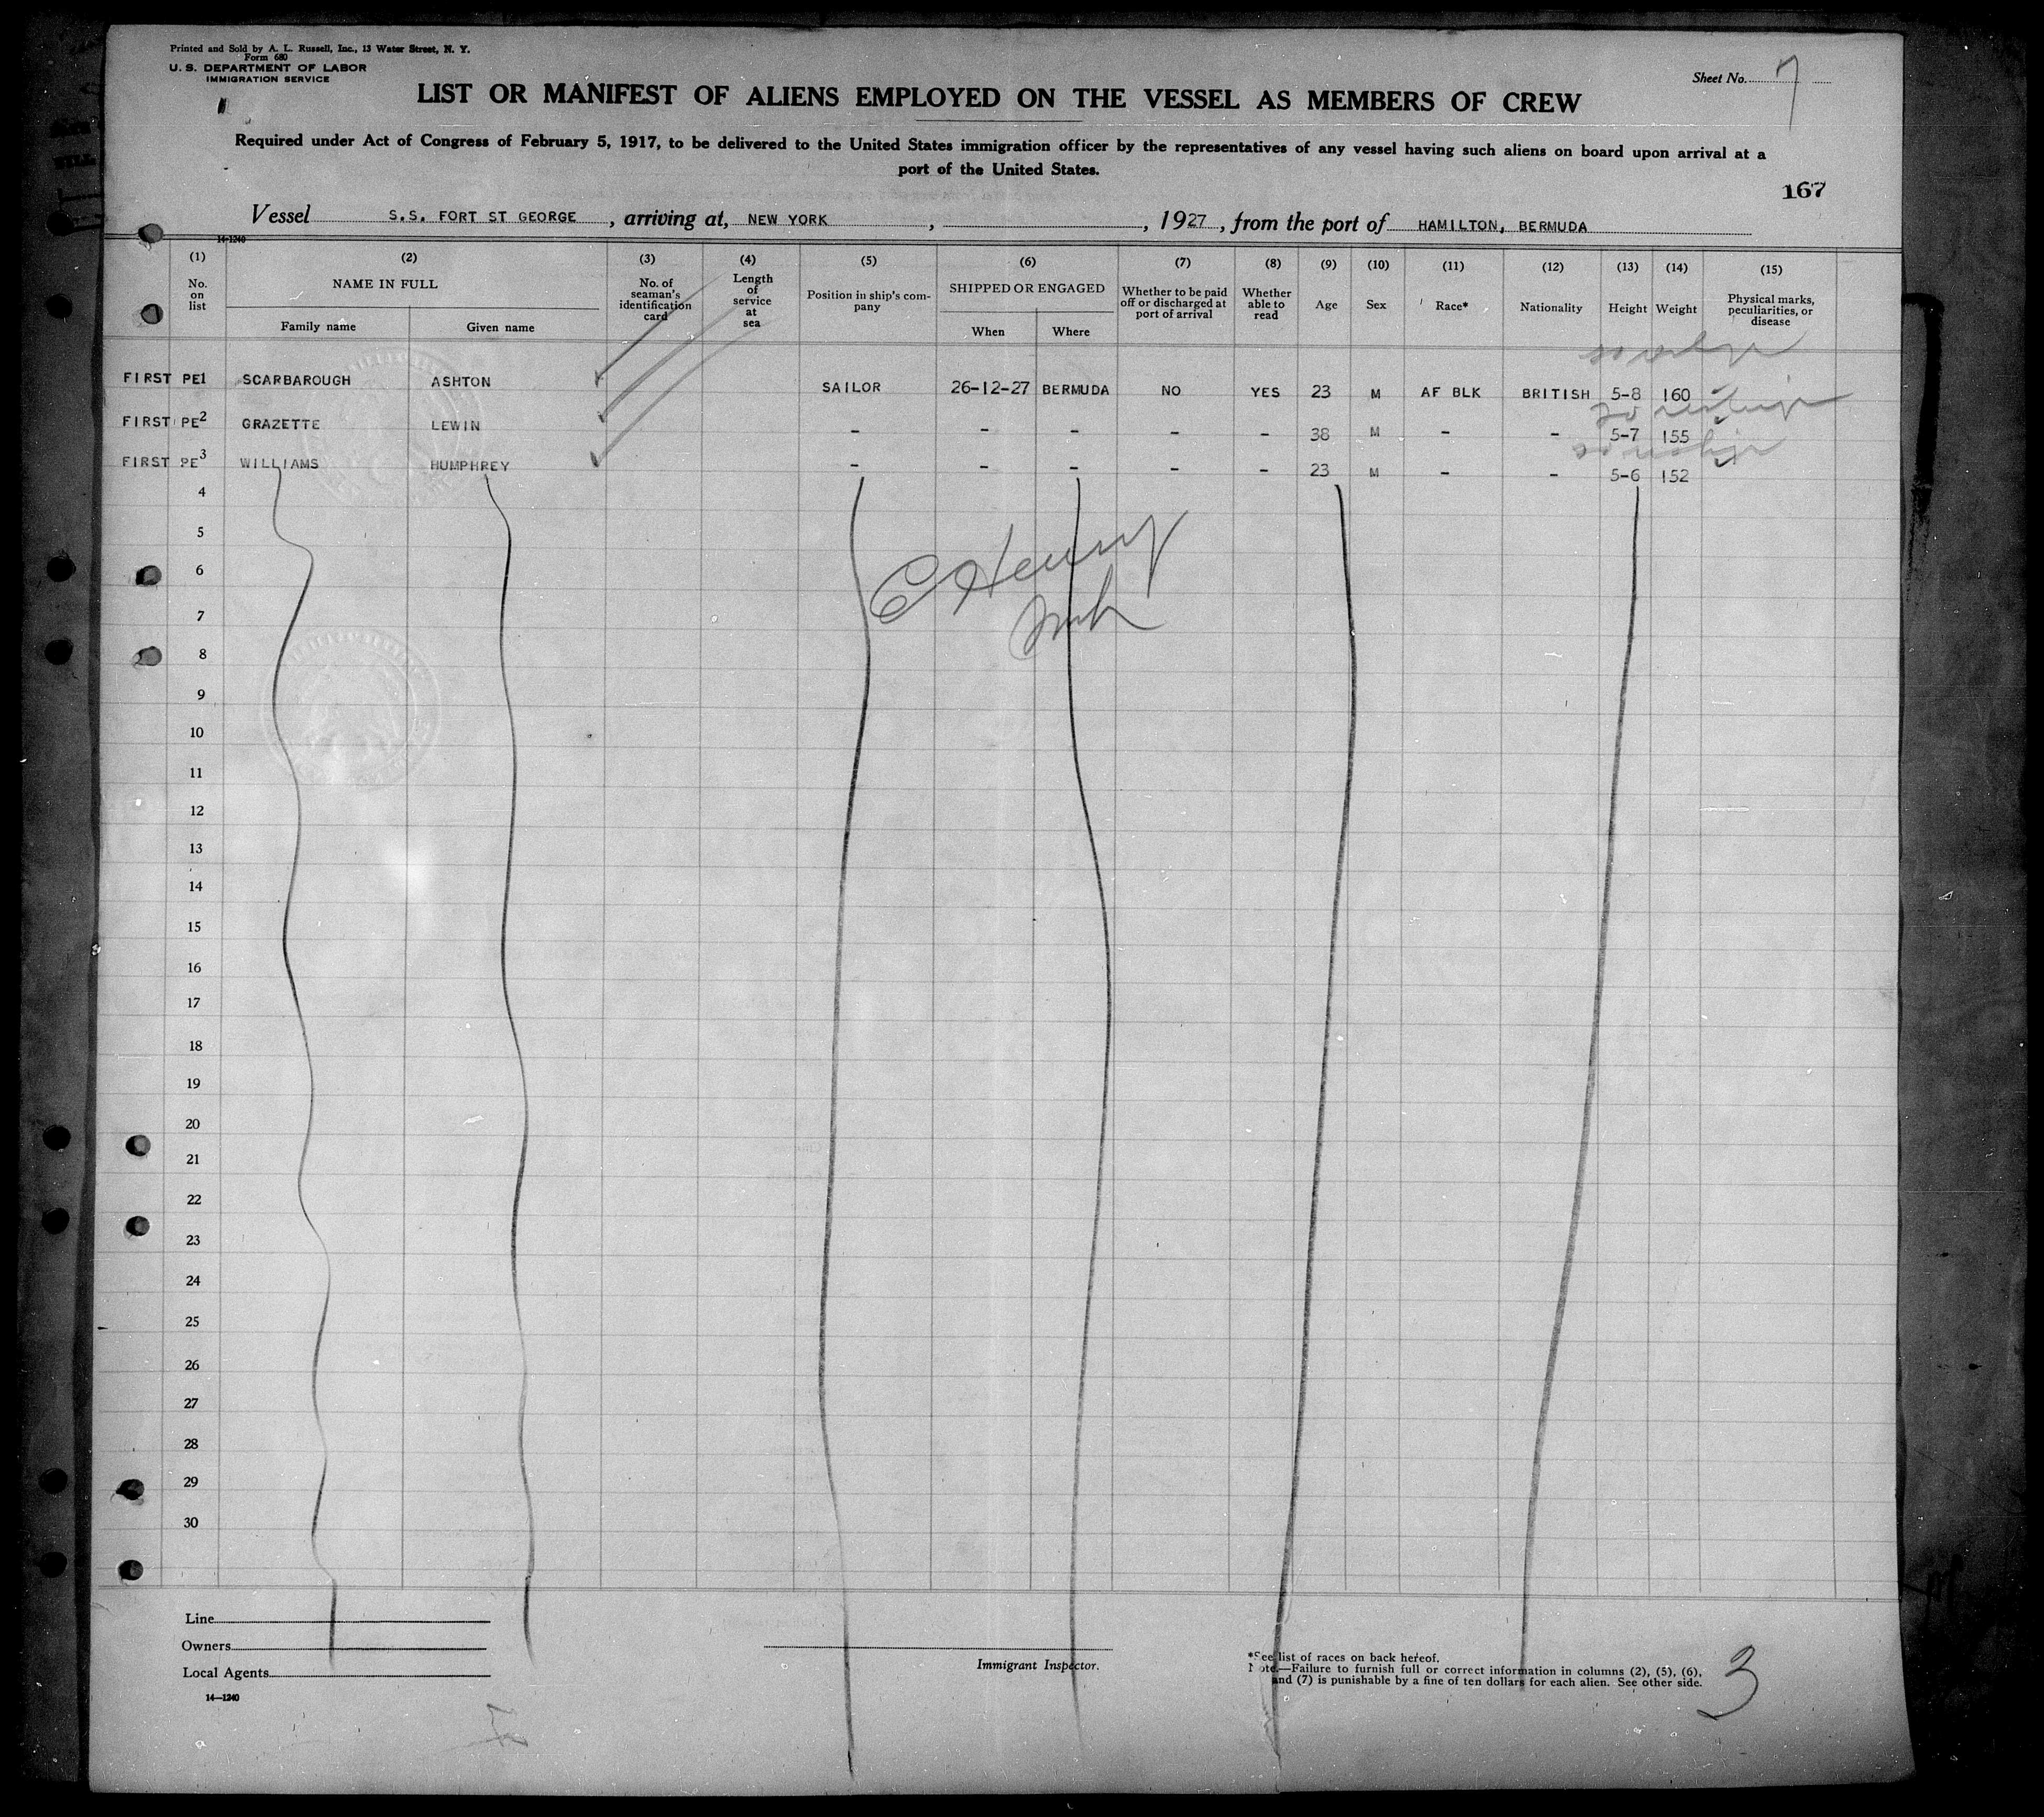 Printed and Sold by A. L. Russell, Inc., 13 Water Street, N. Y.
Form 680
U. S. DEPARTMENT OF LABOR
IMMIGRATION SERVICE
Sheet No. 7
LIST OR MANIFEST OF ALIENS EMPLOYED ON THE VESSEL AS MEMBERS OF CREW
Required under Act of Congress of February 5, 1917, to be delivered to the United States immigration officer by the representatives of any vessel having such aliens on board upon arrival at a
port of the United States.
167
Vessel S.S. FORT ST GEORGE, arriving at, NEW YORK, , 1927, from the port of HAMILTON, BERMUDA
14-1240
(1) (2) (3) (4) (5) (6) (7) (8) (9) (10) (11) (12) (13) (14) (15)
No. on list NAME IN FULL Family name Given name No. of seaman's identification card Length of service at sea Position in ship's company SHIPPED OR ENGAGED When Where Whether to be paid off or discharged at port of arrival Whether able to read Age Sex Race* Nationality Height Weight Physical marks, peculiarities, or disease
FIRST PE1 SCARBAROUGH ASHTON SAILOR 26-12-27 BERMUDA NO YES 23 M AF BLK BRITISH 5-8 160
FIRST PE2 GRAZETTE LEWIN - - - - - 38 M - - 5-7 155
FIRST PE3 WILLIAMS HUMPHREY - - - - - 23 M - - 5-6 152
4
5
6
7
8
9
10
11
12
13
14
15
16
17
18
19
20
21
22
23
24
25
26
27
28
29
30
Line
Owners
Local Agents
14—1240
Immigrant Inspector.
*See list of races on back hereof.
Note.—Failure to furnish full or correct information in columns (2), (5), (6),
and (7) is punishable by a fine of ten dollars for each alien. See other side.
3